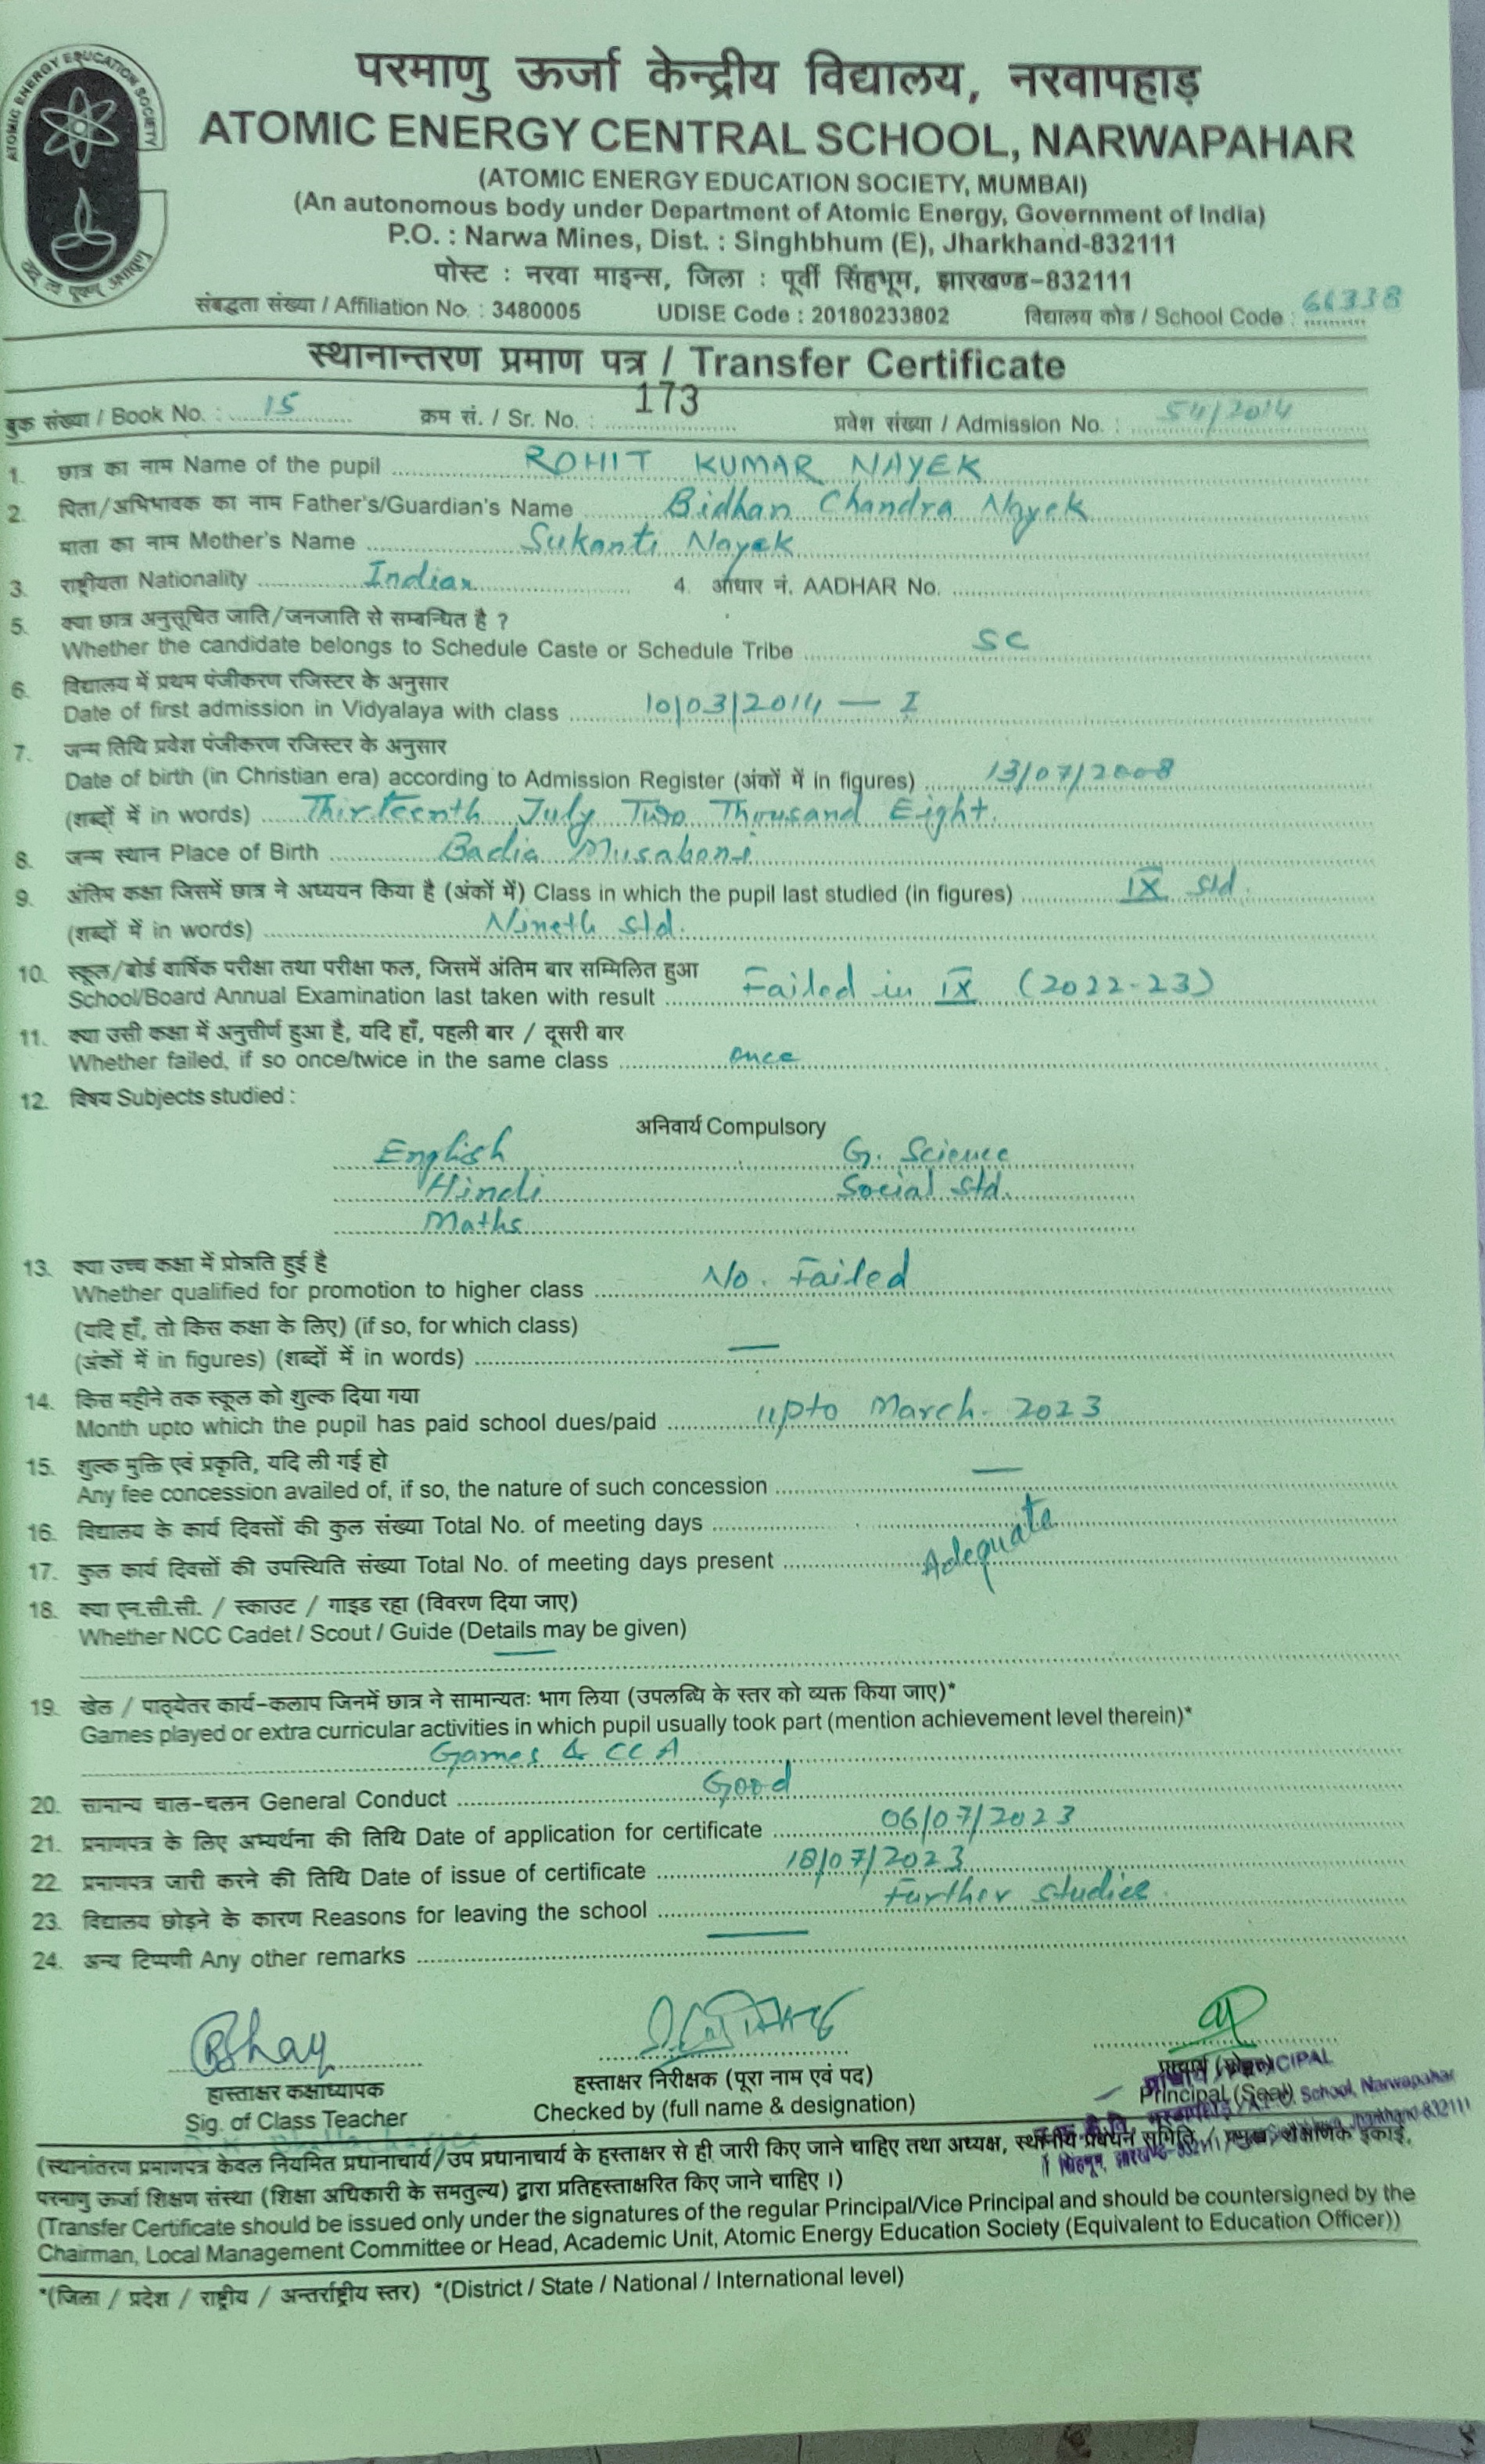 ATOMIC ENERGY EDUCATION SOCIETY
परमाणु ऊर्जा केन्द्रीय विद्यालय, नरवापहाड़
ATOMIC ENERGY CENTRAL SCHOOL, NARWAPAHAR
(ATOMIC ENERGY EDUCATION SOCIETY, MUMBAI)
(An autonomous body under Department of Atomic Energy, Government of India)
P.O. : Narwa Mines, Dist. : Singhbhum (E), Jharkhand-832111
पोस्ट : नरवा माइन्स, जिला : पूर्वी सिंहभूम, झारखण्ड-832111
संबद्धता संख्या / Affiliation No. : 3480005 UDISE Code : 20180233802 विद्यालय कोड / School Code : 66338
स्थानान्तरण प्रमाण पत्र / Transfer Certificate
बुक संख्या / Book No. : 15 क्रम सं. / Sr. No. : 173 प्रवेश संख्या / Admission No. : 54/2014
1. छात्र का नाम Name of the pupil ROHIT KUMAR NAYEK
2. पिता/अभिभावक का नाम Father's/Guardian's Name Bidhan Chandra Nayek
माता का नाम Mother's Name Sukanti Nayek
3. राष्ट्रीयता Nationality Indian 4. आधार नं. AADHAR No.
5. क्या छात्र अनुसूचित जाति/जनजाति से सम्बन्धित है ?
Whether the candidate belongs to Schedule Caste or Schedule Tribe SC
6. विद्यालय में प्रथम पंजीकरण रजिस्टर के अनुसार
Date of first admission in Vidyalaya with class 10/03/2014 — I
7. जन्म तिथि प्रवेश पंजीकरण रजिस्टर के अनुसार
Date of birth (in Christian era) according to Admission Register (अंकों में in figures) 13/07/2008
(शब्दों में in words) Thirteenth July Two Thousand Eight.
8. जन्म स्थान Place of Birth Badia Musaboni
9. अंतिम कक्षा जिसमें छात्र ने अध्ययन किया है (अंकों में) Class in which the pupil last studied (in figures) IX Std.
(शब्दों में in words) Nineth Std.
10. स्कूल/बोर्ड वार्षिक परीक्षा तथा परीक्षा फल, जिसमें अंतिम बार सम्मिलित हुआ
School/Board Annual Examination last taken with result Failed in IX (2022-23)
11. क्या उसी कक्षा में अनुत्तीर्ण हुआ है, यदि हाँ, पहली बार / दूसरी बार
Whether failed, if so once/twice in the same class once
12. विषय Subjects studied :
अनिवार्य Compulsory
English G. Science
Hindi Social Std.
Maths
13. क्या उच्च कक्षा में प्रोन्नति हुई है
Whether qualified for promotion to higher class No. Failed
(यदि हाँ, तो किस कक्षा के लिए) (if so, for which class)
(अंकों में in figures) (शब्दों में in words) —
14. किस महीने तक स्कूल को शुल्क दिया गया
Month upto which the pupil has paid school dues/paid upto March - 2023
15. शुल्क मुक्ति एवं प्रकृति, यदि ली गई हो
Any fee concession availed of, if so, the nature of such concession —
16. विद्यालय के कार्य दिवसों की कुल संख्या Total No. of meeting days
17. कुल कार्य दिवसों की उपस्थिति संख्या Total No. of meeting days present Adequate
18. क्या एन.सी.सी. / स्काउट / गाइड रहा (विवरण दिया जाए)
Whether NCC Cadet / Scout / Guide (Details may be given)
—
19. खेल / पाठ्येतर कार्य-कलाप जिनमें छात्र ने सामान्यतः भाग लिया (उपलब्धि के स्तर को व्यक्त किया जाए)*
Games played or extra curricular activities in which pupil usually took part (mention achievement level therein)*
Games & CCA
20. सामान्य चाल-चलन General Conduct Good
21. प्रमाणपत्र के लिए अभ्यर्थना की तिथि Date of application for certificate 06/07/2023
22. प्रमाणपत्र जारी करने की तिथि Date of issue of certificate 18/07/2023
23. विद्यालय छोड़ने के कारण Reasons for leaving the school Further studies
24. अन्य टिप्पणी Any other remarks —
हास्ताक्षर कक्षाध्यापक
Sig. of Class Teacher
हस्ताक्षर निरीक्षक (पूरा नाम एवं पद)
Checked by (full name & designation)
Principal (Seal)
School, Narwapahar
Jharkhand-832111
(स्थानांतरण प्रमाणपत्र केवल नियमित प्रधानाचार्य/उप प्रधानाचार्य के हस्ताक्षर से ही जारी किए जाने चाहिए तथा अध्यक्ष, स्थानीय प्रबंधन समिति / प्रमुख, शैक्षणिक इकाई,
परमाणु ऊर्जा शिक्षण संस्था (शिक्षा अधिकारी के समतुल्य) द्वारा प्रतिहस्ताक्षरित किए जाने चाहिए ।)
(Transfer Certificate should be issued only under the signatures of the regular Principal/Vice Principal and should be countersigned by the
Chairman, Local Management Committee or Head, Academic Unit, Atomic Energy Education Society (Equivalent to Education Officer))
*(जिला / प्रदेश / राष्ट्रीय / अन्तर्राष्ट्रीय स्तर) *(District / State / National / International level)